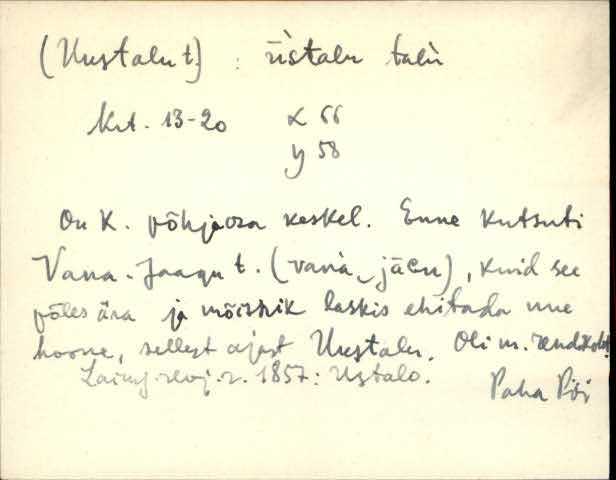 (Uustalu t.) : ǖstalu talù
Krt. 13-20 x 66
y 58
On K. põhjaosa keskel. Enne kutsuti
Vana-Jaagu t. (vanà-jācu), kuid see
põles ära ja mõisnik laskis ehitada uue
hoone, sellest ajast Uustalu. Oli m. rendikoht.
revj. r. 1857: Ustalo.
Paha Pii